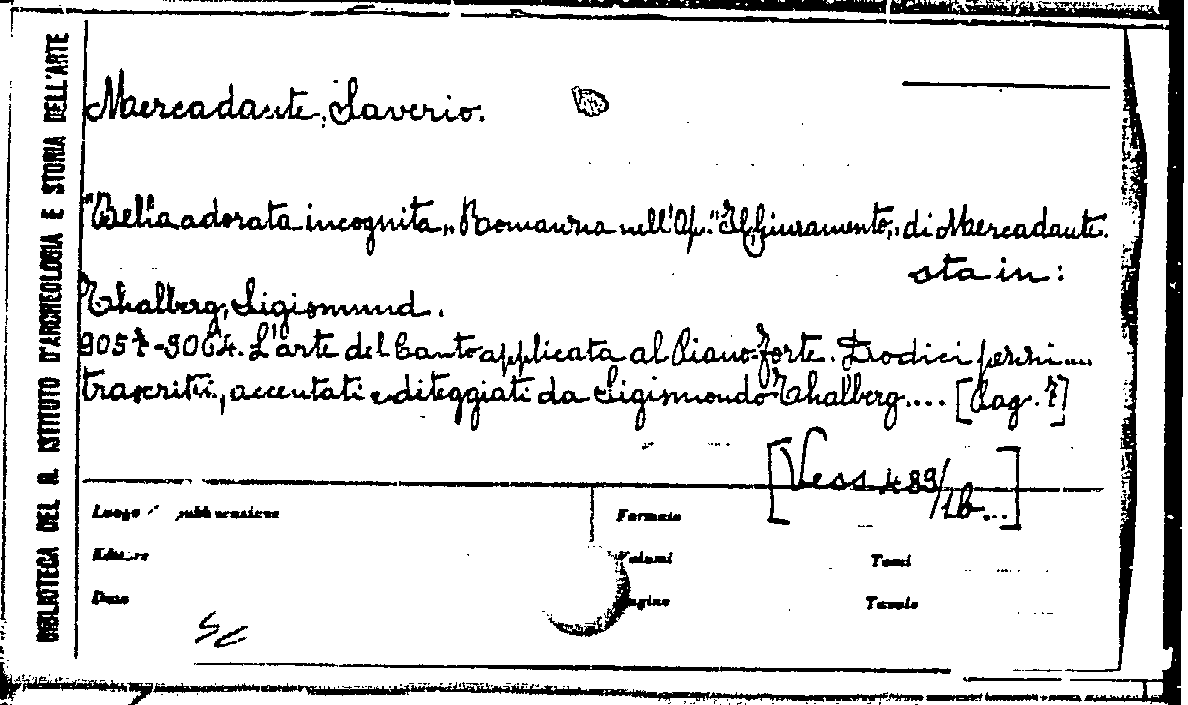 BIBLIOTECA DEL R. ISTITUTO D'ARCHEOLOGIA E STORIA DELL'ARTE
Mercadante, Saverio.
"Bella adorata incognita„ Romanza nell'Op. "Il Giuramento„ di Mercadante.
sta in:
Thalberg, Sigismund.
9057-9064. L'arte del Canto applicata al Piano-forte. Dodici pezzi....
trascritti, accentati e diteggiati da Sigismondo Thalberg.... [Pag. 7]
[Vess. 489/1b...]
Luogo pubblicazione
Formato
Editore
Volumi
Tomi
Data
Pagine
Tavole